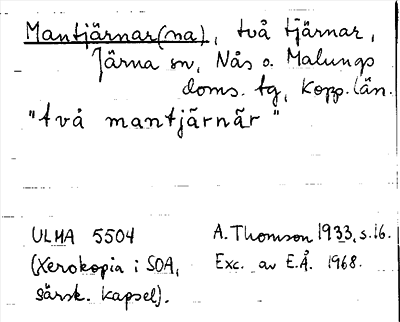 Mantjärnar(na), två tjärnar,
Järna sn, Nås o. Malungs
doms. tg, Kopp. län.
"två mantjärnär"
ULMA 5504
(Xerokopia i SOA,
särsk. kapsel).
A. Thomson 1933, s. 16.
Exc. av E.Å. 1968.